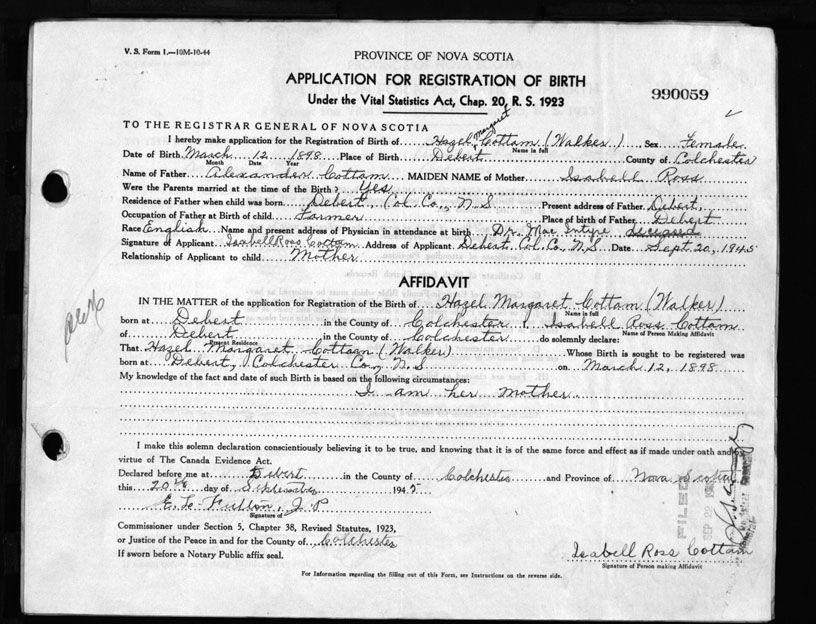 V. S. Form 1.—10M-10-44
PROVINCE OF NOVA SCOTIA
APPLICATION FOR REGISTRATION OF BIRTH
990059
Under the Vital Statistics Act, Chap. 20, R. S. 1923
TO THE REGISTRAR GENERAL OF NOVA SCOTIA
I hereby make application for the Registration of Birth of Hazel Margaret Cottam (Walker) Sex Female
Name in full
Date of Birth March 12 1898 Place of Birth Debert County of Colchester
Month Date Year
Name of Father Alexander Cottam MAIDEN NAME of Mother Isabell Ross
Were the Parents married at the time of the Birth? Yes
Residence of Father when child was born Debert, Col. Co., N.S Present address of Father Debert,
Occupation of Father at Birth of child Farmer Place of birth of Father Debert
Race English Name and present address of Physician in attendance at birth Dr. Mac Intyre deceased
Signature of Applicant Isabell Ross Cottam Address of Applicant Debert, Col. Co., N.S Date Sept. 20, 1945
Relationship of Applicant to child Mother
AFFIDAVIT
IN THE MATTER of the application for Registration of the Birth of Hazel Margaret Cottam (Walker)
Name in full
born at Debert in the County of Colchester I, Isabell Ross Cottam
Name of Person Making Affidavit
of Debert in the County of Colchester do solemnly declare:
Present Residence
That Hazel Margaret Cottam (Walker) Whose Birth is sought to be registered was
born at Debert, Colchester Co., N.S on March 12, 1898
My knowledge of the fact and date of such Birth is based on the following circumstances:
I am her mother
I make this solemn declaration conscientiously believing it to be true, and knowing that it is of the same force and effect as if made under oath and by
virtue of The Canada Evidence Act.
Declared before me at Debert in the County of Colchester and Province of Nova Scotia
this 20th day of September 1945
E. L. Fulton, J. P
Signature of
Commissioner under Section 5, Chapter 38, Revised Statutes, 1923,
or Justice of the Peace in and for the County of Colchester
If sworn before a Notary Public affix seal.
FILED
SEP 22
Isabell Ross Cottam
Signature of Person making Affidavit
For Information regarding the filling out of this Form, see Instructions on the reverse side.